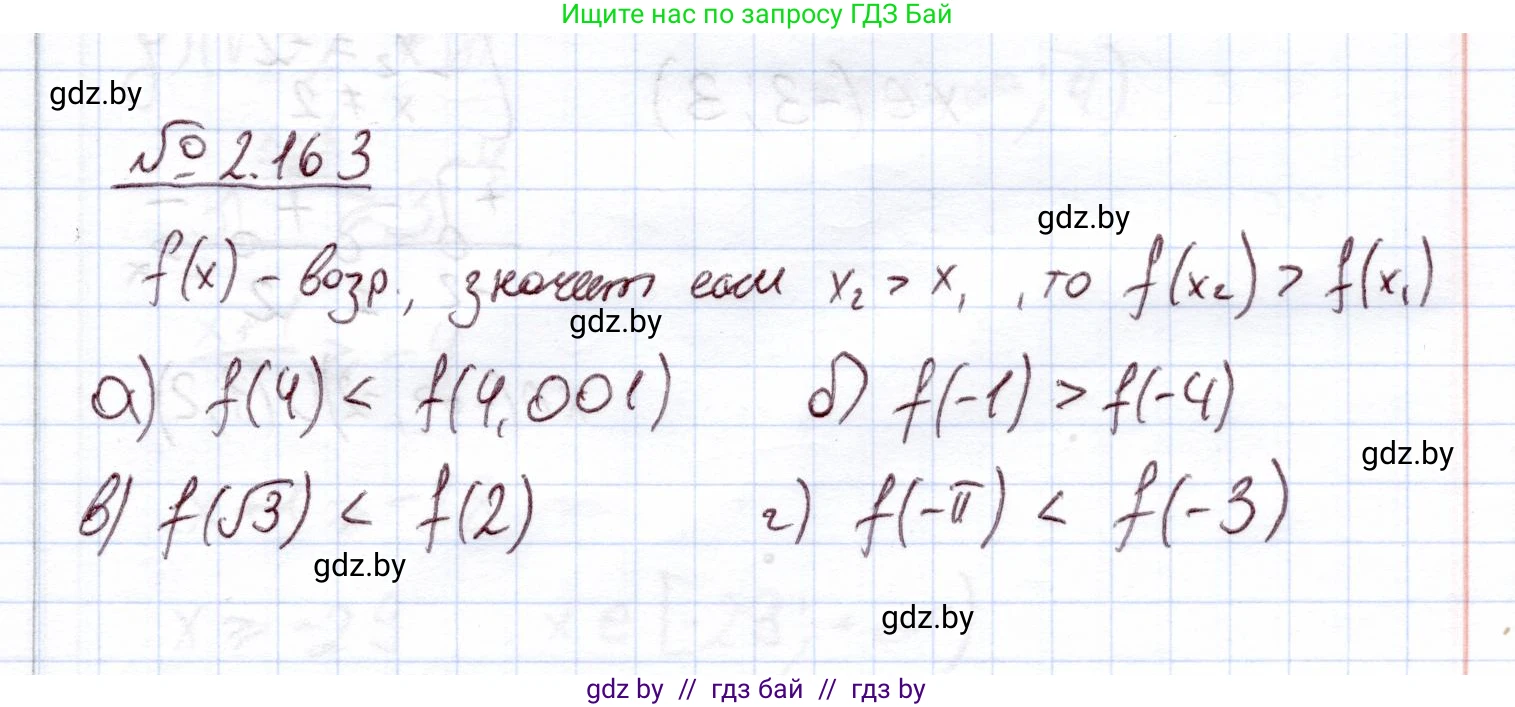 Ищите нас по запросу ГДЗ Бай
gdz.by
№ 2.163
gdz.by
f(x) - возр., значит если x₂ > x₁, то f(x₂) > f(x₁)
gdz.by
а) f(4) < f(4,001) б) f(-1) > f(-4)
gdz.by
в) f(√3) < f(2) г) f(-π) < f(-3)
gdz.by
gdz.by
gdz by // гдз бай // гдз by